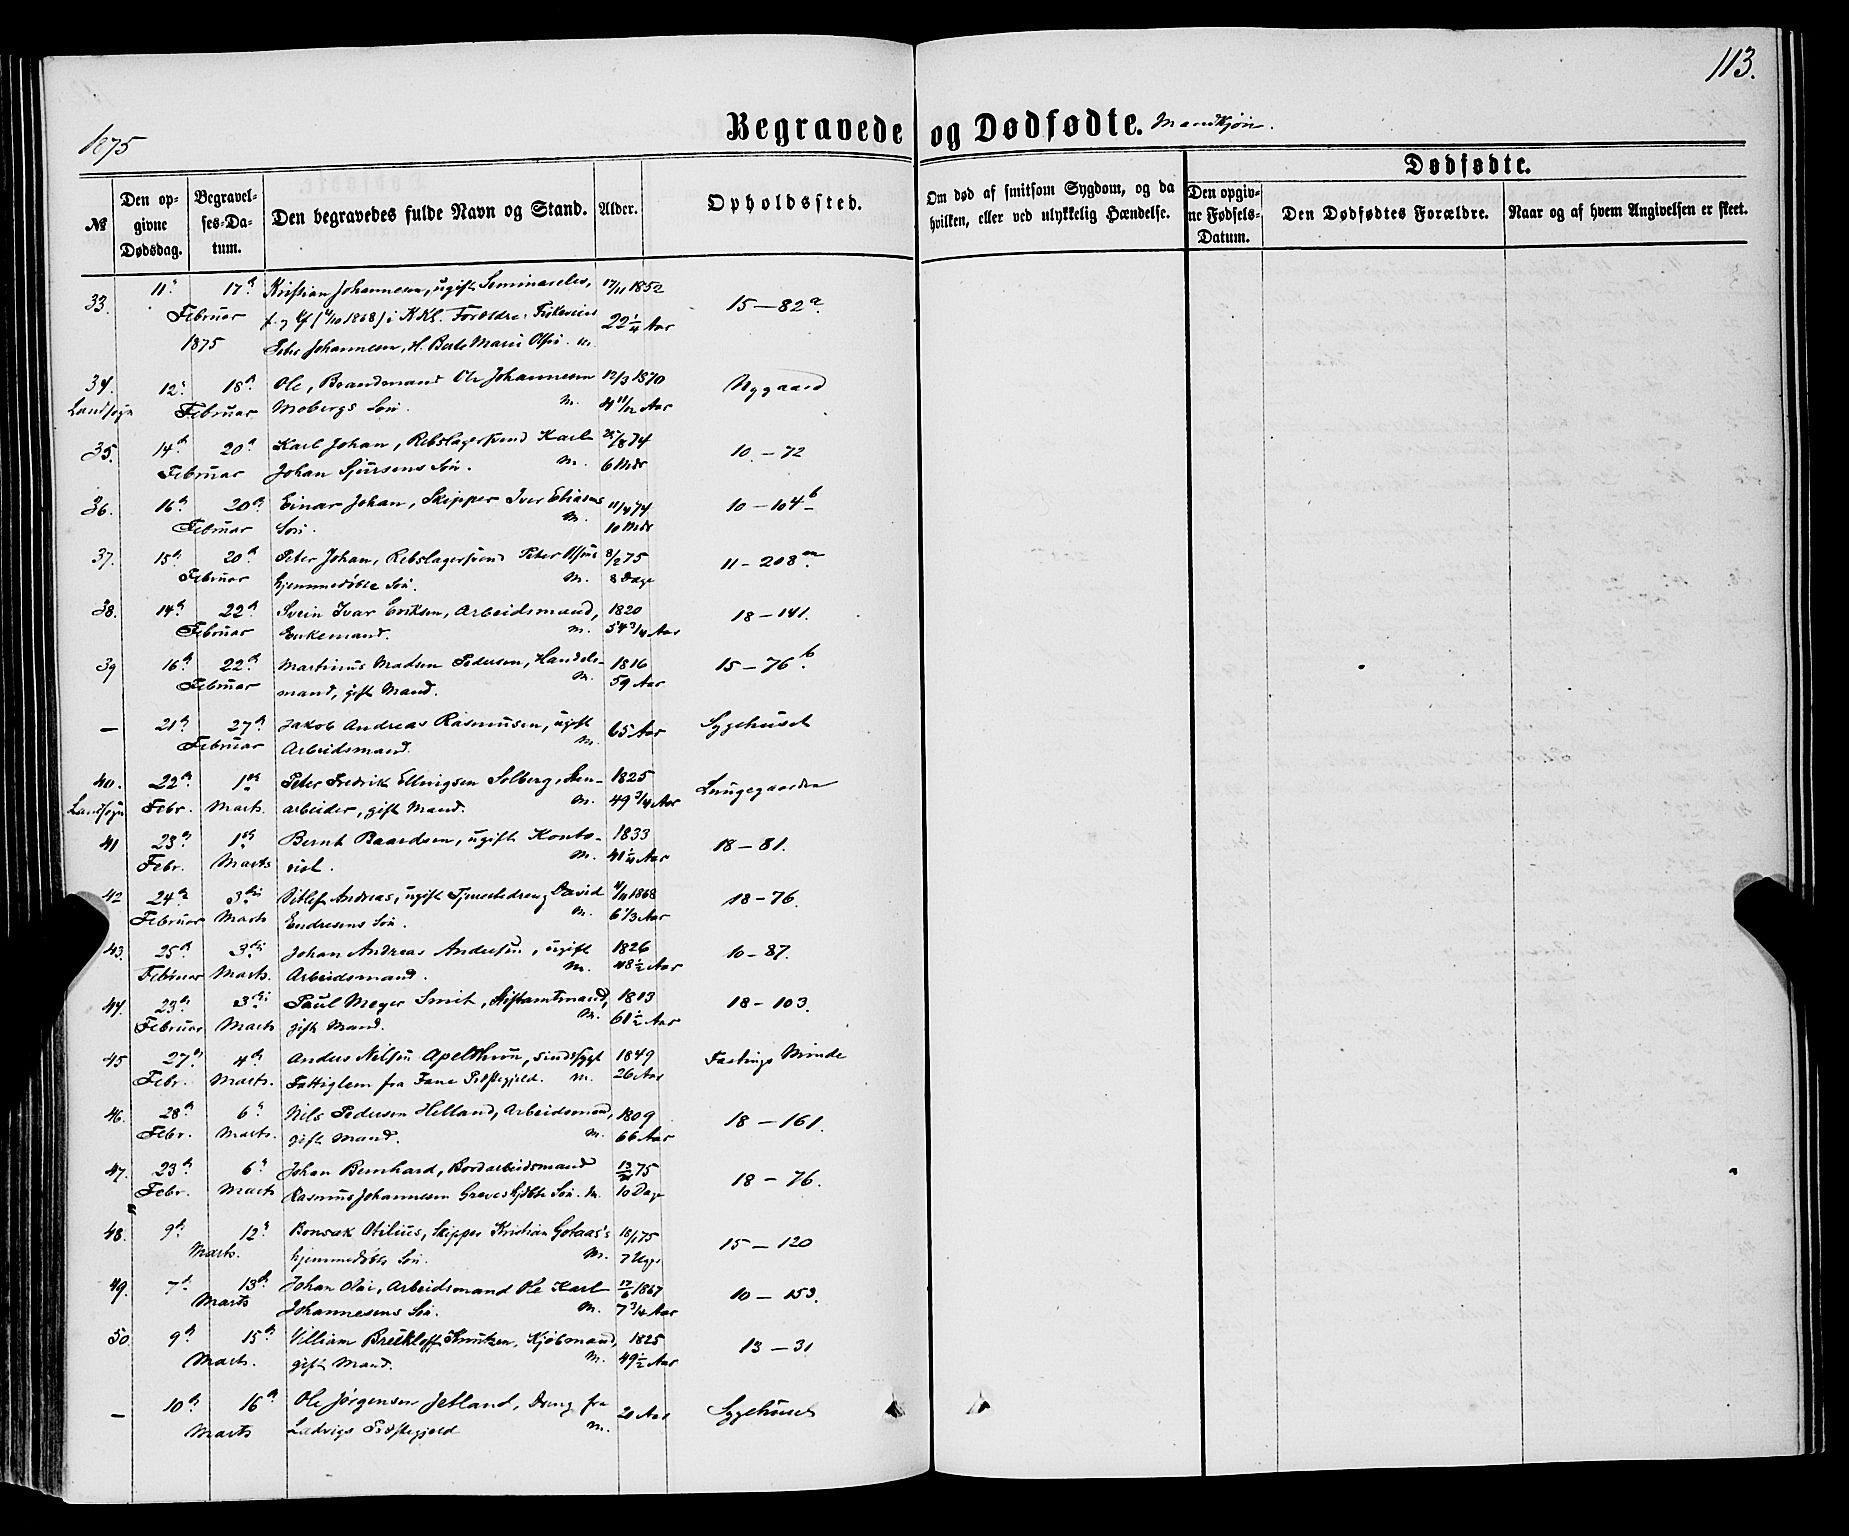 113.
1875
Begravede og Dødfødte. Mandkjøn.
Dødfødte.
№
Den opgivne Dødsdag.
Begravelses-Datum.
Den begravedes fulde Navn og Stand.
Alder.
Opholdssted.
Om død af smitsom Sygdom, og da hvilken, eller ved ulykkelig Hændelse.
Den opgivne Fødsels-Datum.
Den Dødfødtes Forældre.
Naar og af hvem Angivelsen er skeet.
33. 11. 17de Kristian Johannesen, ugift Seminarelev, 17/11 1852 15 – 82a
Februar f. og (1868) i KKl. Forældre: 22 1/4 Aar
1875 Peder Johannesen, H. Berte Marie Olsen. m
34. 12. 18de Ole, Brandmand Ole Johannesen 12/3 1870 Nygaard
Landsogn Februar Mobergs Søn. M. 4 11/12 Aar
35. 14de 20de Karl Johan, Rebslagersvend Karl 25/8 74 10 – 72
Februar Johan Sjursens Søn. M. 6 Mdr
36. 16de 20de Einar Johan, Skipper Iver Eliasens 11/4 74 10 – 104b
Februar Søn. M. 10 Mdr
37. 15de 20de Peter Johan, Rebslagersvend Peter Olsens 8/2 75 11 – 208m
Februar hjemmedøbte Søn. M. 8 Dage
38. 14de 22de Svein Ivar Eriksen, Arbeidsmand, 1820 18 – 141.
Februar Enkemand. M. 54 3/4 Aar
39 16de 22de Martinus Madsen Pedersen, Handels- 1816 15 – 76b
Februar mand, gift Mand. M. 59 Aar
– 21de 27de Jakob Andreas Rasmussen, ugift 65 Aar Sygehuset
Februar Arbeidsmand. M.
40. 22de 1ste Peter Fredrik Ellingsen Solberg, Sten- 1825 Lungegaarden
Landsogn Febr. Marts. arbeider, gift Mand. M. 49 3/4 Aar
41 23de 1ste Bernt Baardsen, ugift Konto- 1833 18 – 81.
Febr. Marts rist. M. 41 1/4 Aar
42 24de 3die Ditlef Andreas, ugift Tjenestedreng David 1868 18 – 76.
Februar Marts Endresens Søn. M. 6 1/3 Aar
43. 25de 3die Johan Andreas Andersen, ugift 1826 10 – 87.
Februar Marts. Arbeidsmand. M. 48 1/2 Aar
44. 23de 3die Paul Meyer Smit, Stiftamtmand, 1813 18 – 103.
Februar Marts gift Mand. M. 61 1/2 Aar
45 27de 4de Anders Nilsen Apelthun, sindssygt 1849 Fastings Minde
Febr. Marts. Fattiglem fra Fane Præstegjeld. M. 26 Aar
46. 28de 6te Nils Pedersen Helland, Arbeidsmand, 1809 18 – 161.
Febr. Marts. gift Mand. M. 66 Aar
47. 23de 6te Johan Bernhard, Bordarbeidsmand 13/2 75 18 – 76.
Febr. Marts Rasmus Johannesen Greves hjdbte Søn. M. 10 Dage
48. 9de 12te Bonsak Otilius, Skipper Kristian Gotaas's 18/1 75 15 – 120
Marts. hjemmedøbte Søn. M. 7 Uger
49. 7de 13de Johan Olai, Arbeidsmand Ole Karl 17/6 1867 10 – 153.
Marts Johannesens Søn. M. 7 3/4 Aar
50. 9de 15de Villiam Knutzen, Kjøbmand, 1825 13 – 31
Marts. gift Mand. M. 49 1/2 Aar
– 10de 16de Ole Jørgensen Jetland, Dreng fra 20 Aar Sygehuset
Marts Ladvigs Præstegjeld M.